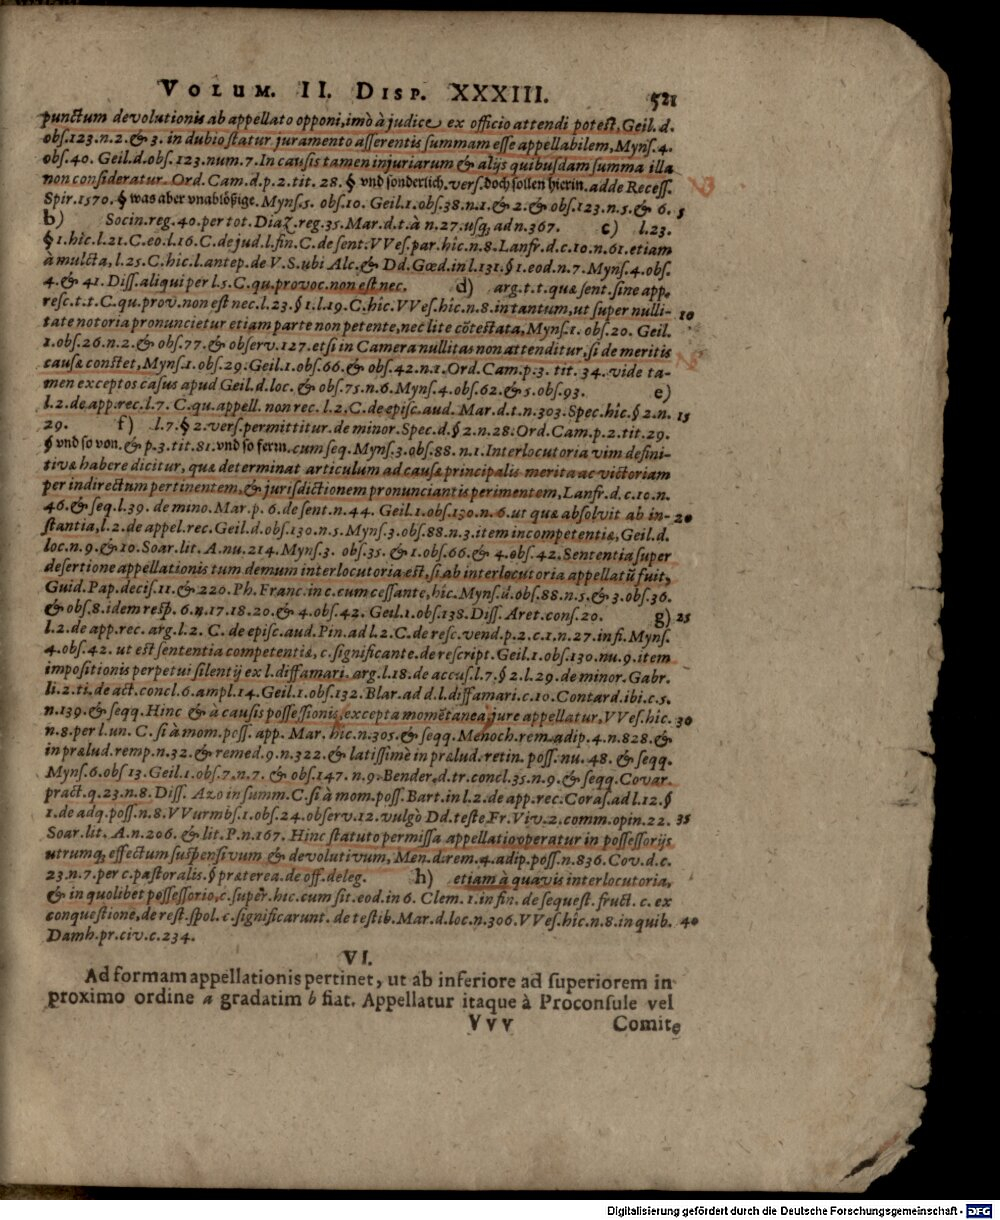 VOLUM. II. DISP. XXXIII. 521
punctum devolutionis ab appellato opponi, imò à judice ex officio attendi potest, Geil. d.
obs. 123. n. 2. & 3. in dubio statur juramento asserentis summam esse appellabilem, Myns. 4.
obs. 40. Geil. d. obs. 123. num. 7. In causis tamen injuriarum & alijs quibusdam summa illa
non consideratur. Ord. Cam. d. p. 2. tit. 28. § vnd sonderlich. vers. doch sollen hierin. adde Recess.
Spir. 1570. § was aber vnablößige. Myns. 5. obs. 10. Geil. 1. obs. 38. n. 1. & 2. & obs. 123. n. 5. & 6. 5
b) Socin. reg. 40. per tot. Diaz. reg. 35. Mar. d. t. à n. 27. usq, ad n. 367. c) l. 23.
§ 1. hîc. l. 21. C. eo. l. 16. C. de jud. l. fin. C. de sent. VVes. par. hîc. n. 8. Lanfr. d. c. 10. n. 61. etiam
à mulcta, l. 25. C. hîc. l. antep. de V. S. ubi Alc. & Dd. Gœd. in l. 131. § 1. eod. n. 7. Myns. 4. obs.
4. & 41. Diss. aliqui per l. 5. C. qu. provoc. non est nec. d) arg. t. t. quæ sent. sine app.
resc. t. t. C. qu. prov. non est nec. l. 23. § 1. l. 19. C. hîc. VVes. hîc. n. 8. in tantum, ut super nulli- 10
tate notoria pronuncietur etiam parte non petente, nec lite cōtestata, Myns. 1. obs. 20. Geil.
1. obs. 26. n. 2. & obs. 77. & observ. 127. etsi in Camera nullitas non attenditur, si de meritis
causæ constet, Myns. 1. obs. 29. Geil. 1. obs. 66. & obs. 42. n. 1. Ord. Cam. p. 3. tit. 34. vide ta-
men exceptos casus apud Geil. d. loc. & obs. 75. n. 6. Myns. 4. obs. 62. & 5. obs. 93. e)
l. 2. de app. rec. l. 7. C. qu. appell. non rec. l. 2. C. de episc. aud. Mar. d. t. n. 303. Spec. hîc. § 2. n. 15
29. f) l. 7. § 2. vers. permittitur. de minor. Spec. d. § 2. n. 28. Ord. Cam. p. 2. tit. 29.
§ vnd so von. & p. 3. tit. 81. vnd so fern. cum seq. Myns. 3. obs. 88. n. 1. Interlocutoria vim defini-
tivæ habere dicitur, quæ determinat articulum ad causæ principalis merita ac victoriam
per indirectum pertinentem, & jurisdictionem pronunciantis perimentem, Lanfr. d. c. 10. n.
46. & seq. l. 39. de mino. Mar. p. 6. de sent. n. 44. Geil. 1. obs. 130. n. 6. ut quæ absolvit ab in- 20
stantia, l. 2. de appel. rec. Geil. d. obs. 130. n. 5. Myns. 3. obs. 88. n. 3. item incompetentiæ, Geil. d.
loc. n. 9. & 10. Soar. lit. A. nu. 214. Myns. 3. obs. 35. & 1. obs. 66. & 4. obs. 42. Sententia super
desertione appellationis tum demum interlocutoria est, si ab interlocutoria appellatū fuit,
Guid. Pap. decis. 11. & 220. Ph. Franc. in c. cum cessante, hic. Myns. d. obs. 88. n. 5. & 3. obs. 36.
& obs. 8. idem resp. 6. n. 17. 18. 20. & 4. obs. 42. Geil. 1. obs. 138. Diss. Aret. cons. 20. g) 25
l. 2. de app. rec. arg. l. 2. C. de episc. aud. Pin. ad l. 2. C. de resc. vend. p. 2. c. 1. n. 27. in fi. Myns.
4. obs. 42. ut est sententia competentiæ, c. significante. de rescript. Geil. 1. obs. 130. nu. 9. item
impositionis perpetui silentij ex l. diffamari. arg. l. 18. de accus. l. 7. § 2. l. 29. de minor. Gabr.
li. 2. ti. de act. concl. 6. ampl. 14. Geil. 1. obs. 132. Blar. ad d. l. diffamari. c. 10. Contard. ibi. c. 5.
n. 139. & seqq. Hinc & à causis possessionis, excepta momētanea, jure appellatur, VVes. hic. 30
n. 8. per l. un. C. si à mom. poss. app. Mar. hîc. n. 305. & seqq. Menoch. rem. adip. 4. n. 828. &
in prælud. remp. n. 32. & remed. 9. n. 322. & latissimè in prælud. retin. poss. nu. 48. & seqq.
Myns. 6. obs 13. Geil. 1. obs. 7. n. 7. & obs. 147. n. 9. Bender. d. tr. concl. 35. n. 9. & seqq. Covar.
pract. q. 23. n. 8. Diss. Azo in summ. C. si à mom. poss. Bart. in l. 2. de app. rec. Coras. ad l. 12. §
1. de adq. poss. n. 8. VVurmbs. 1. obs. 24. observ. 12. vulgò Dd. teste Fr. Viv. 2. comm. opin. 22. 35
Soar. lit. A. n. 206. & lit. P. n. 167. Hinc statuto permissa appellatio operatur in possessorijs
utrumq, effectum suspensivum & devolutivum, Men. d. rem. 4. adip. poss. n. 836. Cov. d. c.
23. n. 7. per c. pastoralis. § præterea. de off. deleg. h) etiam à quavis interlocutoria,
& in quolibet possessorio, c. super. hîc. cum sit. eod. in 6. Clem. 1. in fin. de sequest. fruct. c. ex
conquestione, de rest. spol. c. significarunt. de testib. Mar. d. loc. n. 306. VVes. hîc. n. 8. in quib. 40
Damh. pr. civ. c. 234.
VI.
Ad formam appellationis pertinet, ut ab inferiore ad superiorem in
proximo ordine a gradatim b fiat. Appellatur itaque à Proconsule vel
Vvv Comite
Digitalisierung gefördert durch die Deutsche Forschungsgemeinschaft - DFG